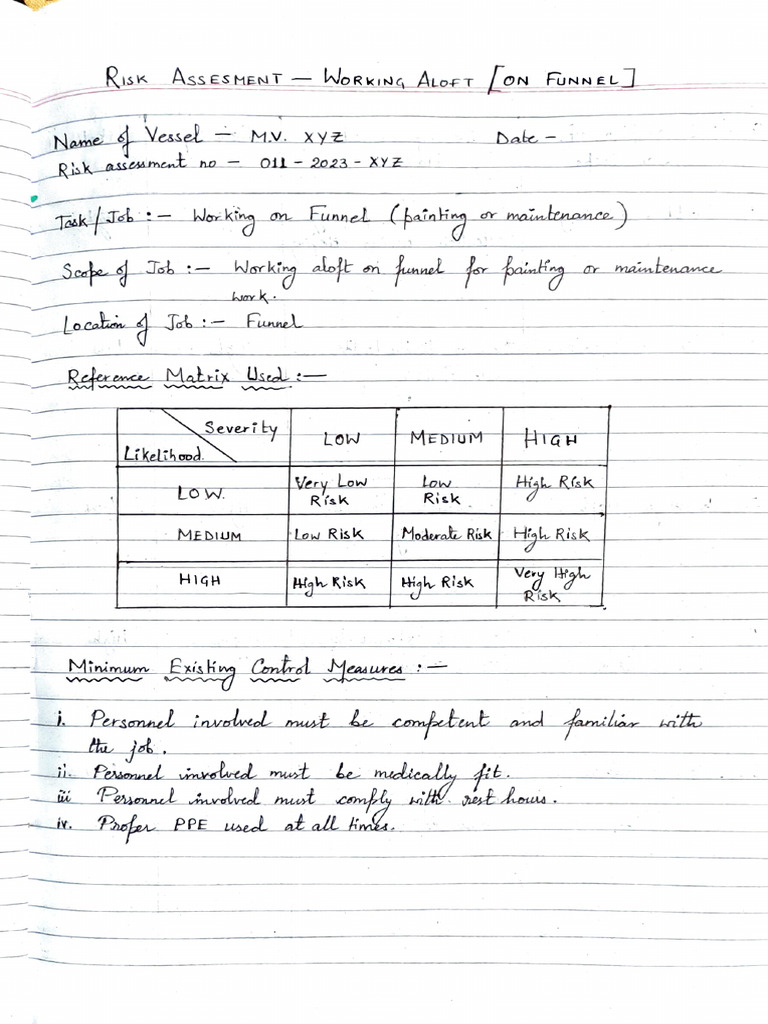 RISK ASSESMENT — WORKING ALOFT [ON FUNNEL]
Name of Vessel — M.V. XYZ Date —
Risk assessment no — 011 - 2023 - XYZ
Task/Job :— Working on Funnel (painting or maintenance)
Scope of Job :— Working aloft on funnel for painting or maintenance
work.
Location of Job :— Funnel
Reference Matrix Used :—
Severity
Likelihood. LOW MEDIUM HIGH
LOW. Very Low Risk Low Risk High Risk
MEDIUM Low Risk Moderate Risk High Risk
HIGH High Risk High Risk Very High Risk
Minimum Existing Control Measures :—
i. Personnel involved must be competent and familiar with
the job.
ii. Personnel involved must be medically fit.
iii Personnel involved must comply with rest hours.
iv. Proper PPE used at all times.